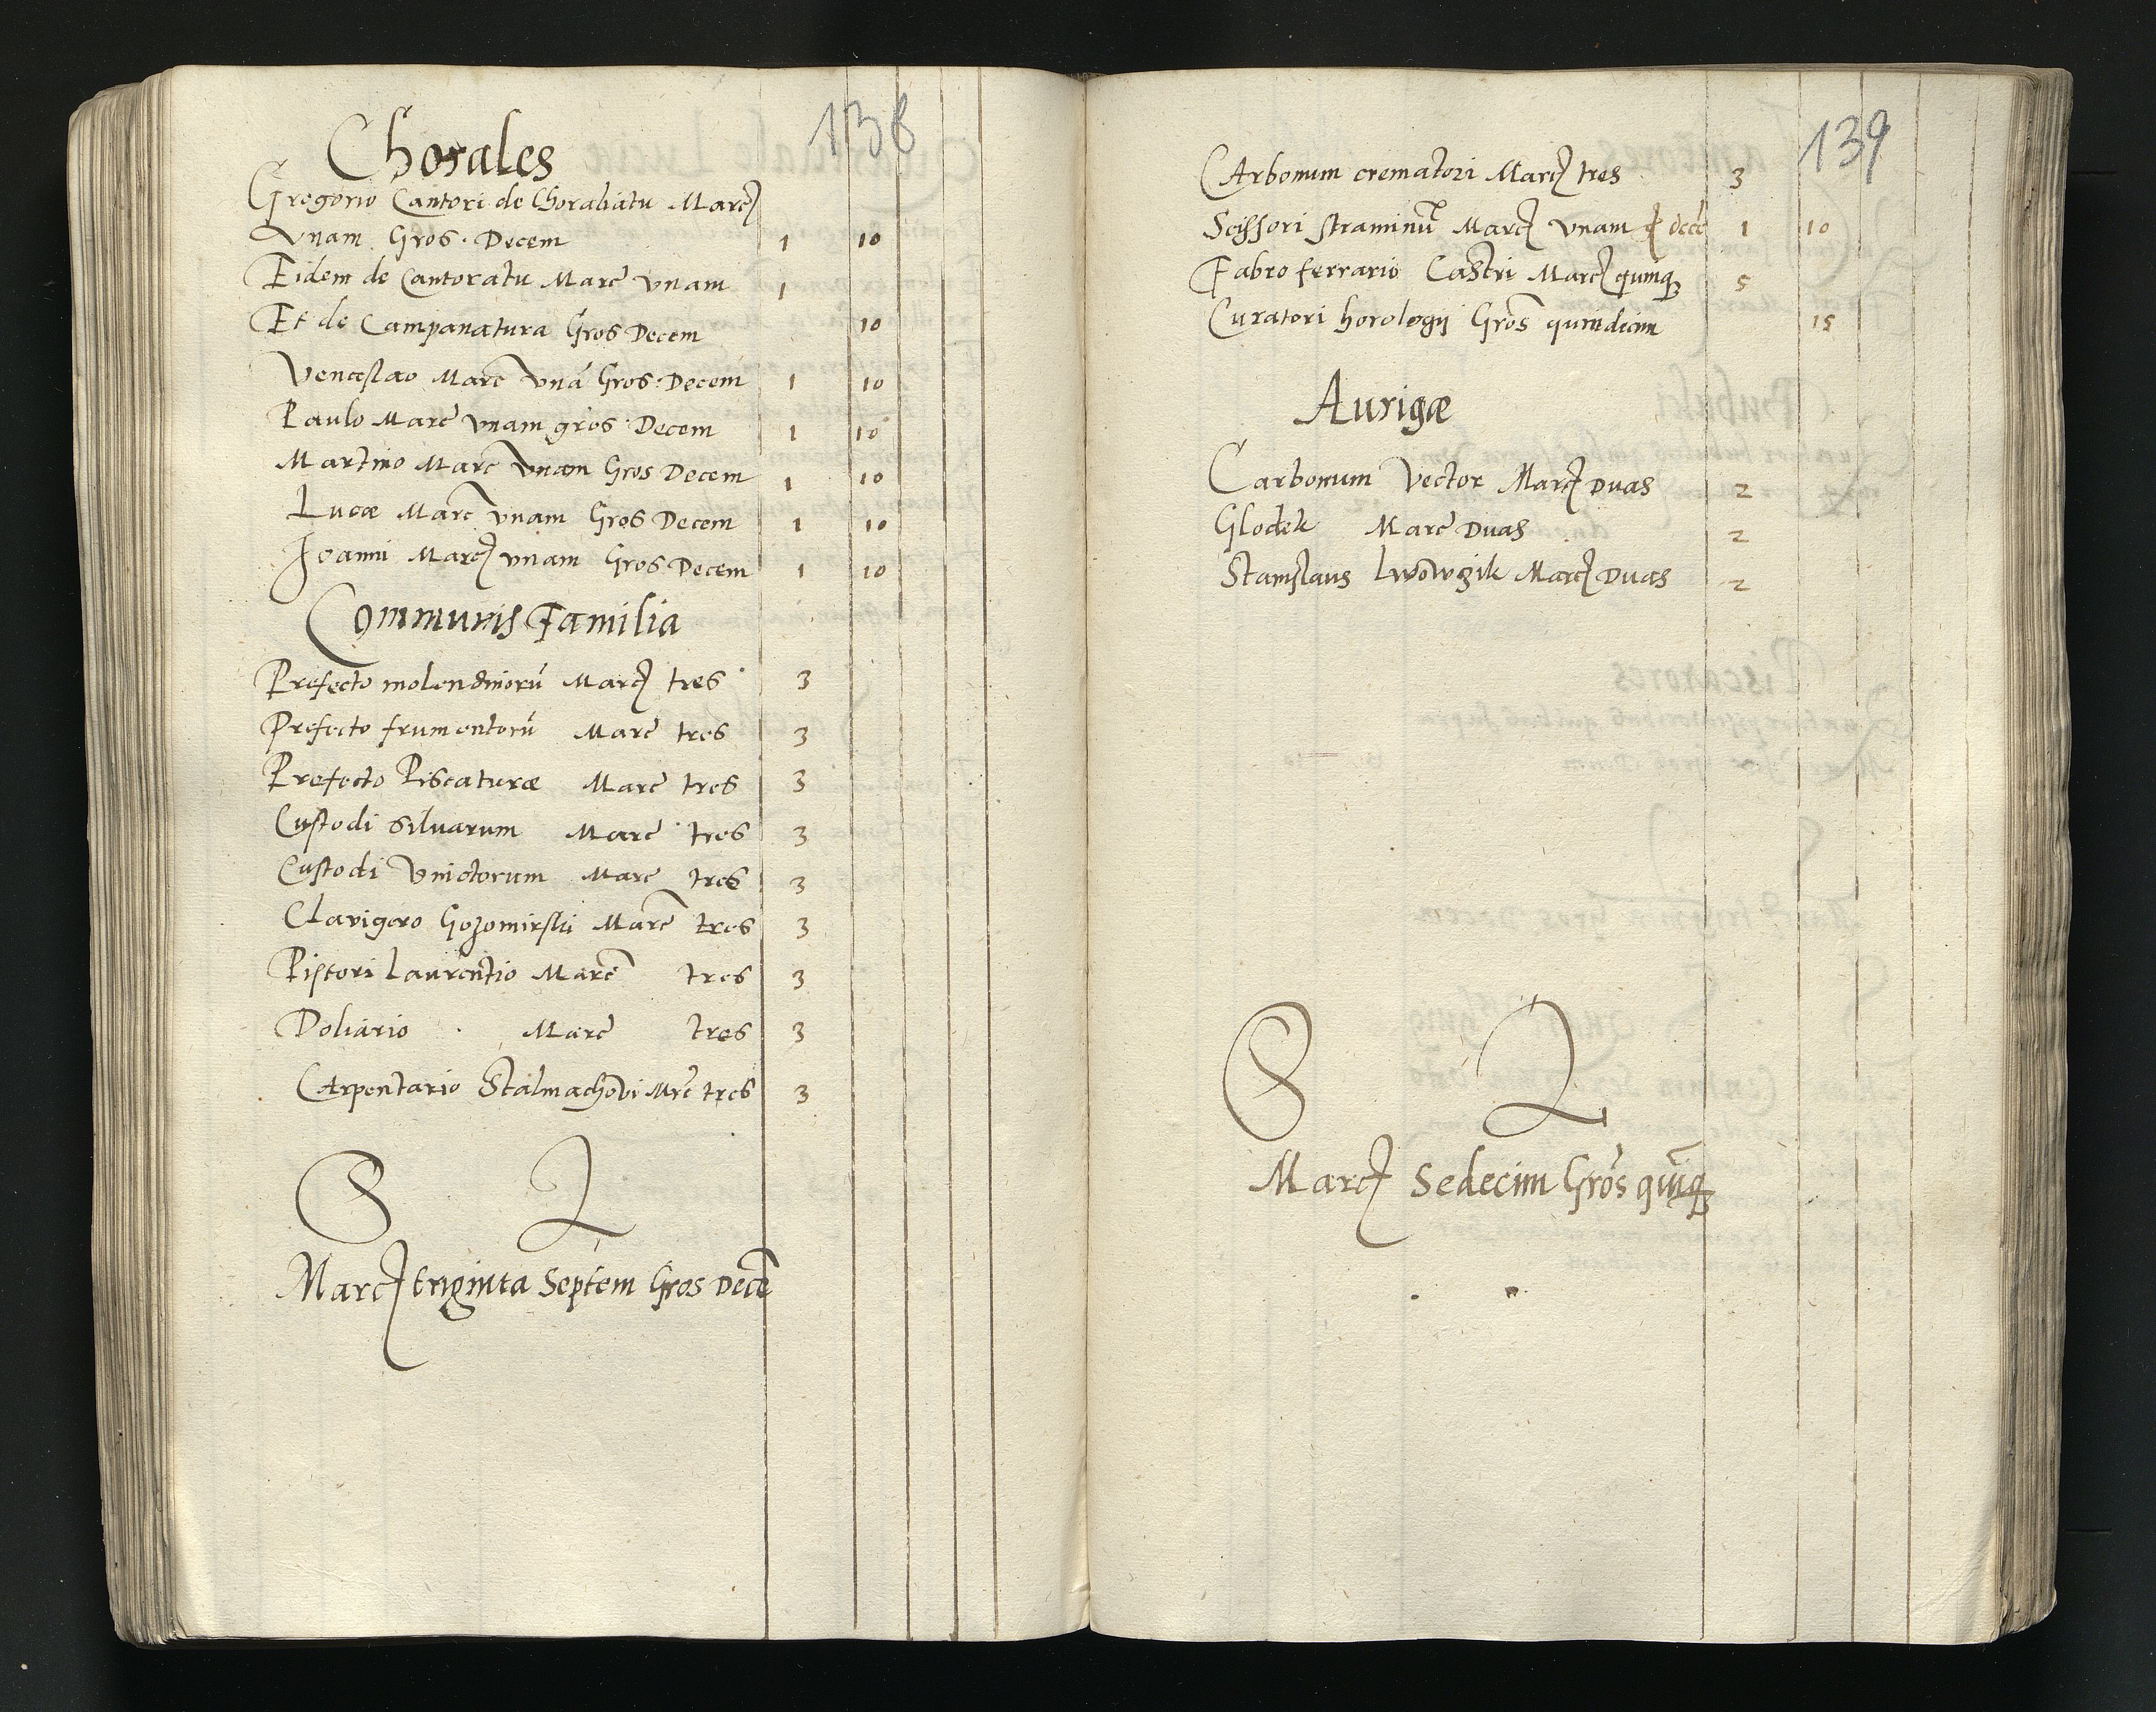 138
Chorales
Gregorio Cantori de Choraliatu Marc
Vnam Gros. Decem 1 10
Eidem de Cantoratu Marc vnam 1
Et de Campanatura Gros Decem 10
Venceslao Marc vnā Gros. Decem 1 10
Paulo Marc vnam gros. Decem 1 10
Martino Marc vnam Gros Decem 1 10
Lucæ Marc vnam Gros Decem 1 10
Joanni Marc vnam Gros Decem 1 10
Communis Familia
Prefecto molendinorū Marc tres 3
Prefecto frumentorū Marc tres 3
Prefecto Piscaturæ Marc tres 3
Custodi Siluarum Marc tres 3
Custodi Vinctorum Marc tres 3
Clavigero Gozomirski Marc tres 3
Pistori Laurentio Marc tres 3
Doliario Marc tres 3
Carpentario Stalmachovi Mrc tres 3
S L
Marc triginta Septem Gros Decē
139
Carbonum crematori Marc tres 3
Scissori straminū Marc vnam g decē 1 10
Fabro ferrario Castri Marc quinq 5
Curatori horologij Gros quindecim 15
Aurigæ
Carbonum Vector Marc Duas 2
Glodek Marc Duas 2
Stanislaus Lwowczik Marc Duas 2
S L
Marc Sedecim Gros quīq